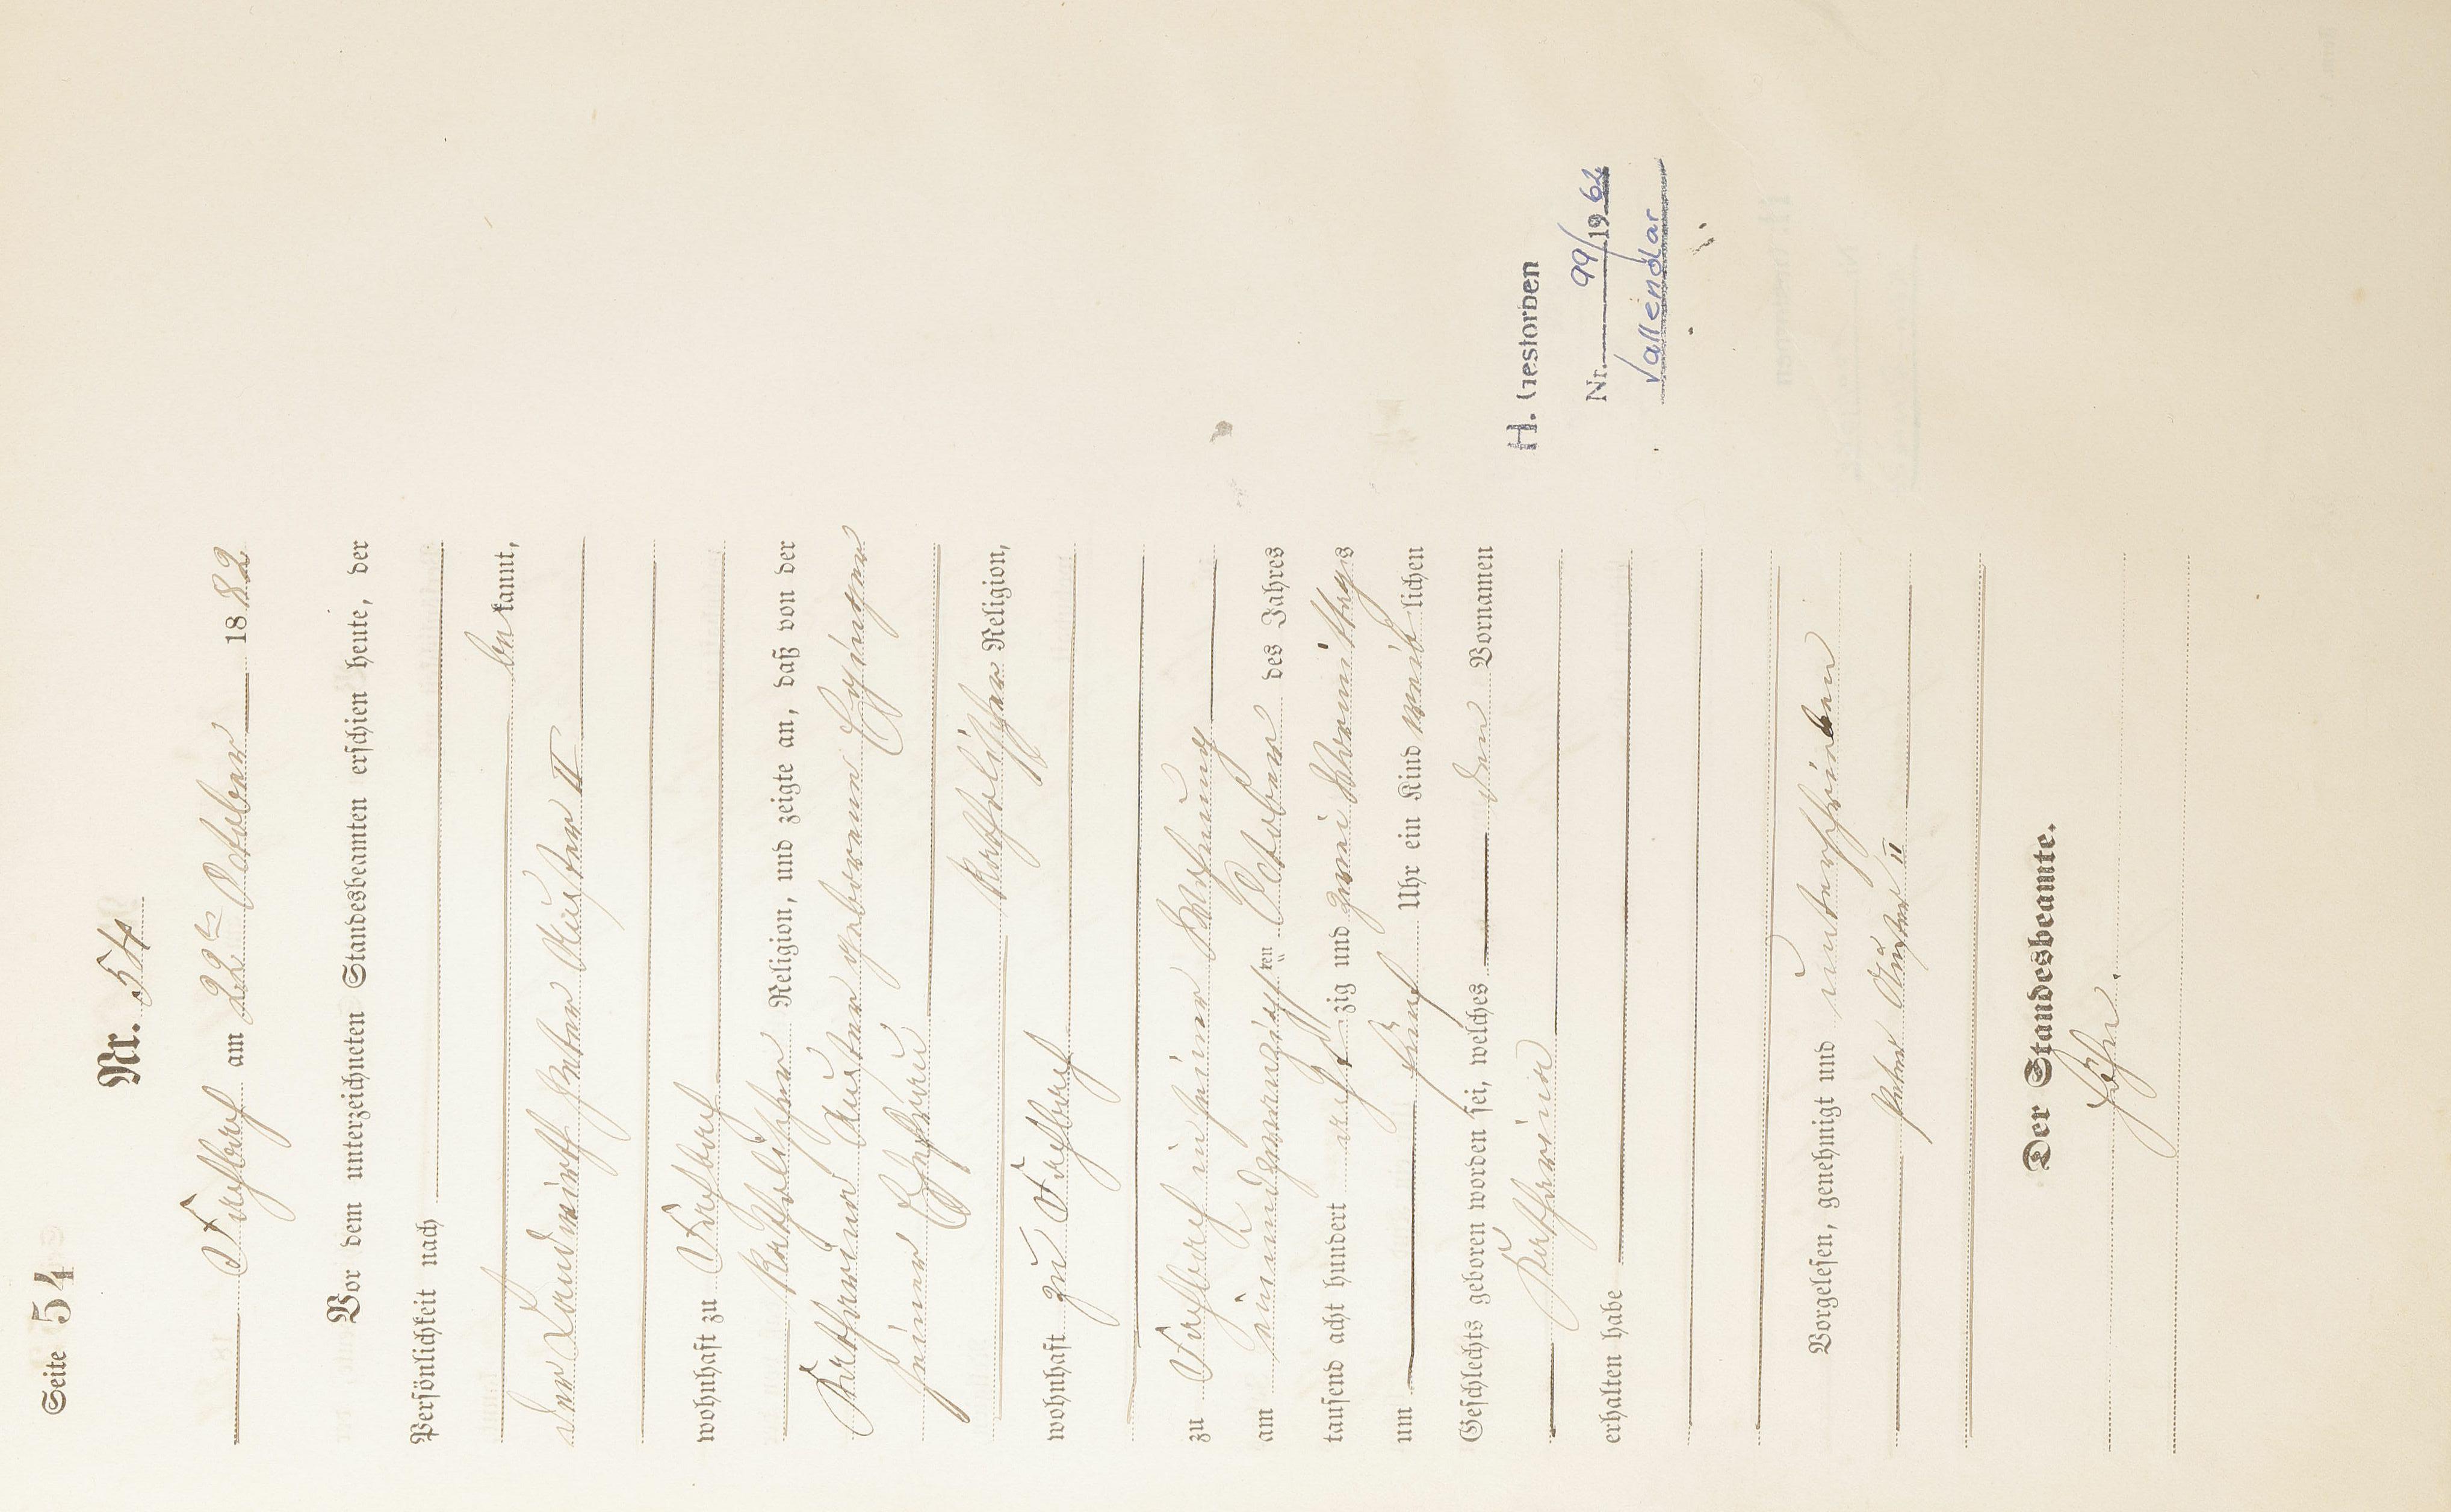 Seite 54
Nr. 54
am 22ten October 1882
Vor dem unterzeichneten Standesbeamten erschien heute, der
Persönlichkeit nach
bekannt,
der Landwirth Peter
II
wohnhaft zu
katholischer Religion, und zeigte an, daß von der
Katharina geborenen
seiner Ehefrau
katholischer Religion,
wohnhaft zu
zu in seiner Wohnung
am einundzwanzigsten October des Jahres
tausend acht hundert achtzig und zwei Vormittags
um fünf Uhr ein Kind weiblichen
Geschlechts geboren worden sei, welches den Vornamen
Katharina
erhalten habe
Vorgelesen, genehmigt und unterschrieben
Peter II
Der Standesbeamte.
H. Gestorben
Nr. 99/1962
Vallendar